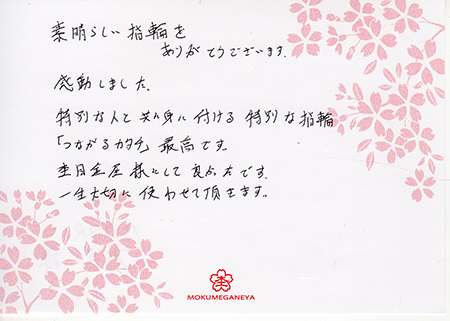 素晴らしい指輪を
ありがとうございます。
感動しました。
特別な人と共に身に付ける特別な指輪
「つながるカタチ」最高です。
杢目金屋様にして良かったです。
一生大切に使わせて頂きます。
MOKUMEGANEYA